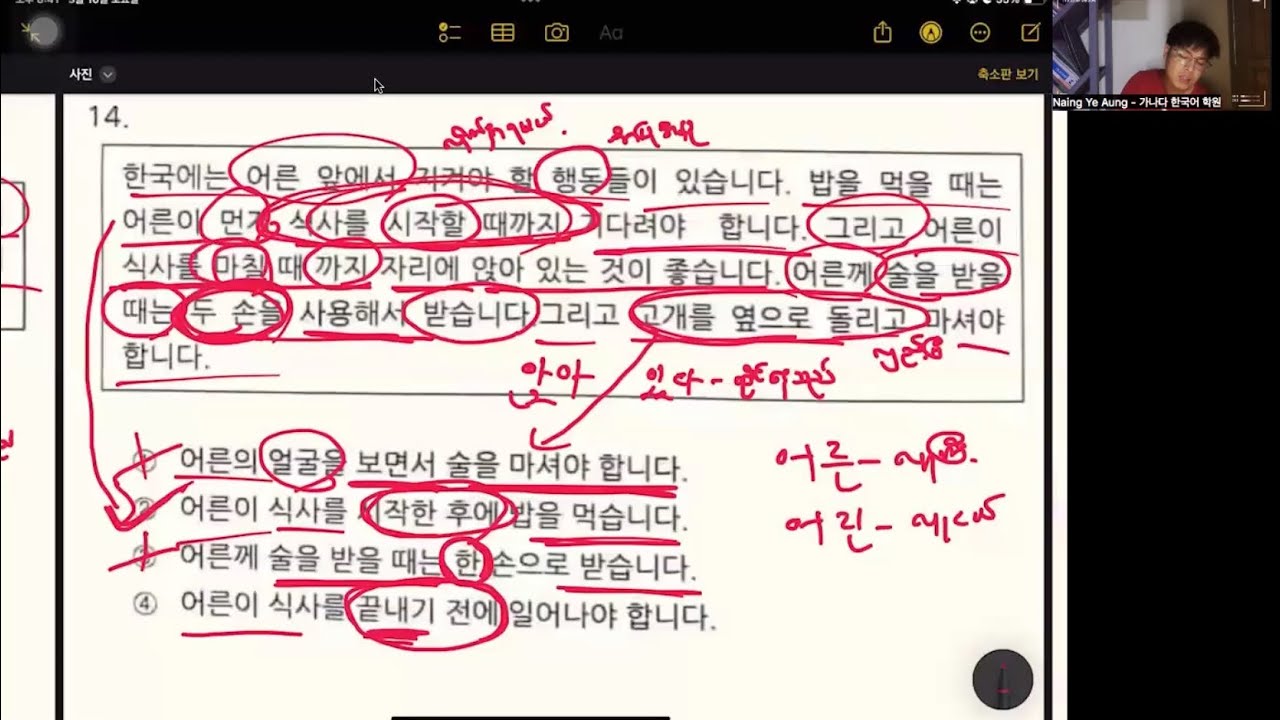 사진
축소판 보기
Naing Ye Aung - 가나다 한국어 학원
14.
한국에는 어른 앞에서 지켜야 할 행동들이 있습니다. 밥을 먹을 때는
어른이 먼저 식사를 시작할 때까지 기다려야 합니다. 그리고 어른이
식사를 마칠 때 까지 자리에 앉아 있는 것이 좋습니다. 어른께 술을 받을
때는 두 손을 사용해서 받습니다 그리고 고개를 옆으로 돌리고 마셔야
합니다.
① 어른의 얼굴을 보면서 술을 마셔야 합니다.
② 어른이 식사를 시작한 후에 밥을 먹습니다.
③ 어른께 술을 받을 때는 한 손으로 받습니다.
④ 어른이 식사를 끝내기 전에 일어나야 합니다.
어른 -
어린 -